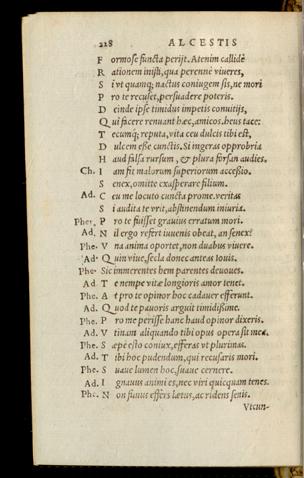 228 ALCESTIS
F ormose functa perijt. Atenim callidè
R ationem inijsti, qua perennè viueres,
S i vt quamq; nactus coniugem sis, ne mori
P ro te recuset, persuadere poteris.
D einde ipse timidus impetis conuitijs,
Q ui facere renuant hæc, amicos. heus tace:
T ecumq; reputa, vita ceu dulcis tibi est,
D ulcem esse cunctis. Si ingeras opprobria
H aud falsa rursum, & plura forsan audies.
Ch. I am fit malorum superiorum accessio.
S enex, omitte exasperare filium.
Ad. C eu me locuto cuncta prome. veritas
S i audita te vrit, abstinendum iniuria.
Phe. P ro te fuisset grauius erratum mori.
Ad. N il ergo refert iuuenis obeat, an senex?
Phe. V na anima oportet, non duabus viuere.
Ad. Q uin viue, secla donec anteas Iouis.
Phe. Sic immerentes bem parentes deuoues.
Ad. T e nempe vitæ longioris amor tenet.
Phe. A t pro te opinor hoc cadauer efferunt.
Ad. Q uod te pauoris arguit timidissime.
Phe. P ro me perisse hanc haud opinor dixeris.
Ad. V tinam aliquando tibi opus opera sit mea.
Phe. S æpè esto coniux, efferas vt plurimas.
Ad. T ibi hoc pudendum, qui recusaris mori.
Phe. S uaue lumen hoc, suaue cernere.
Ad. I gnauus animi es, nec viri quicquam tenes.
Phe. N on funus effers lætus, ac ridens senis.
Vicun-